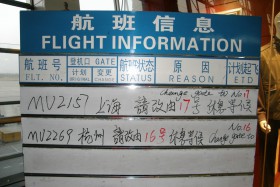 航 班 信 息
FLIGHT INFORMATION
航班号 登机口 GATE 航班状态 原因 计划起飞
计划 变更
FLT. NO. STATUS REASON ETD
change gate to No 17
MU2157 上海 請改由17号 休息等候
change gate to No 16
MU2269 杭州 請改由16号 休息等候